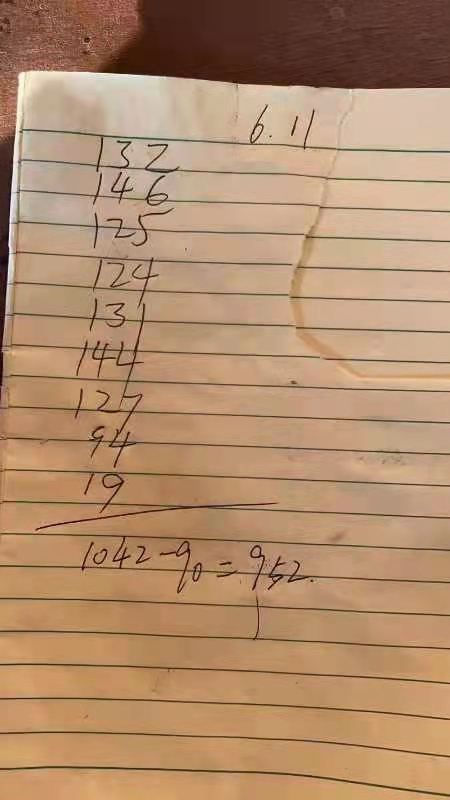 6.11
132
146
125
124
131
144
127
94
19
1042-90=952.